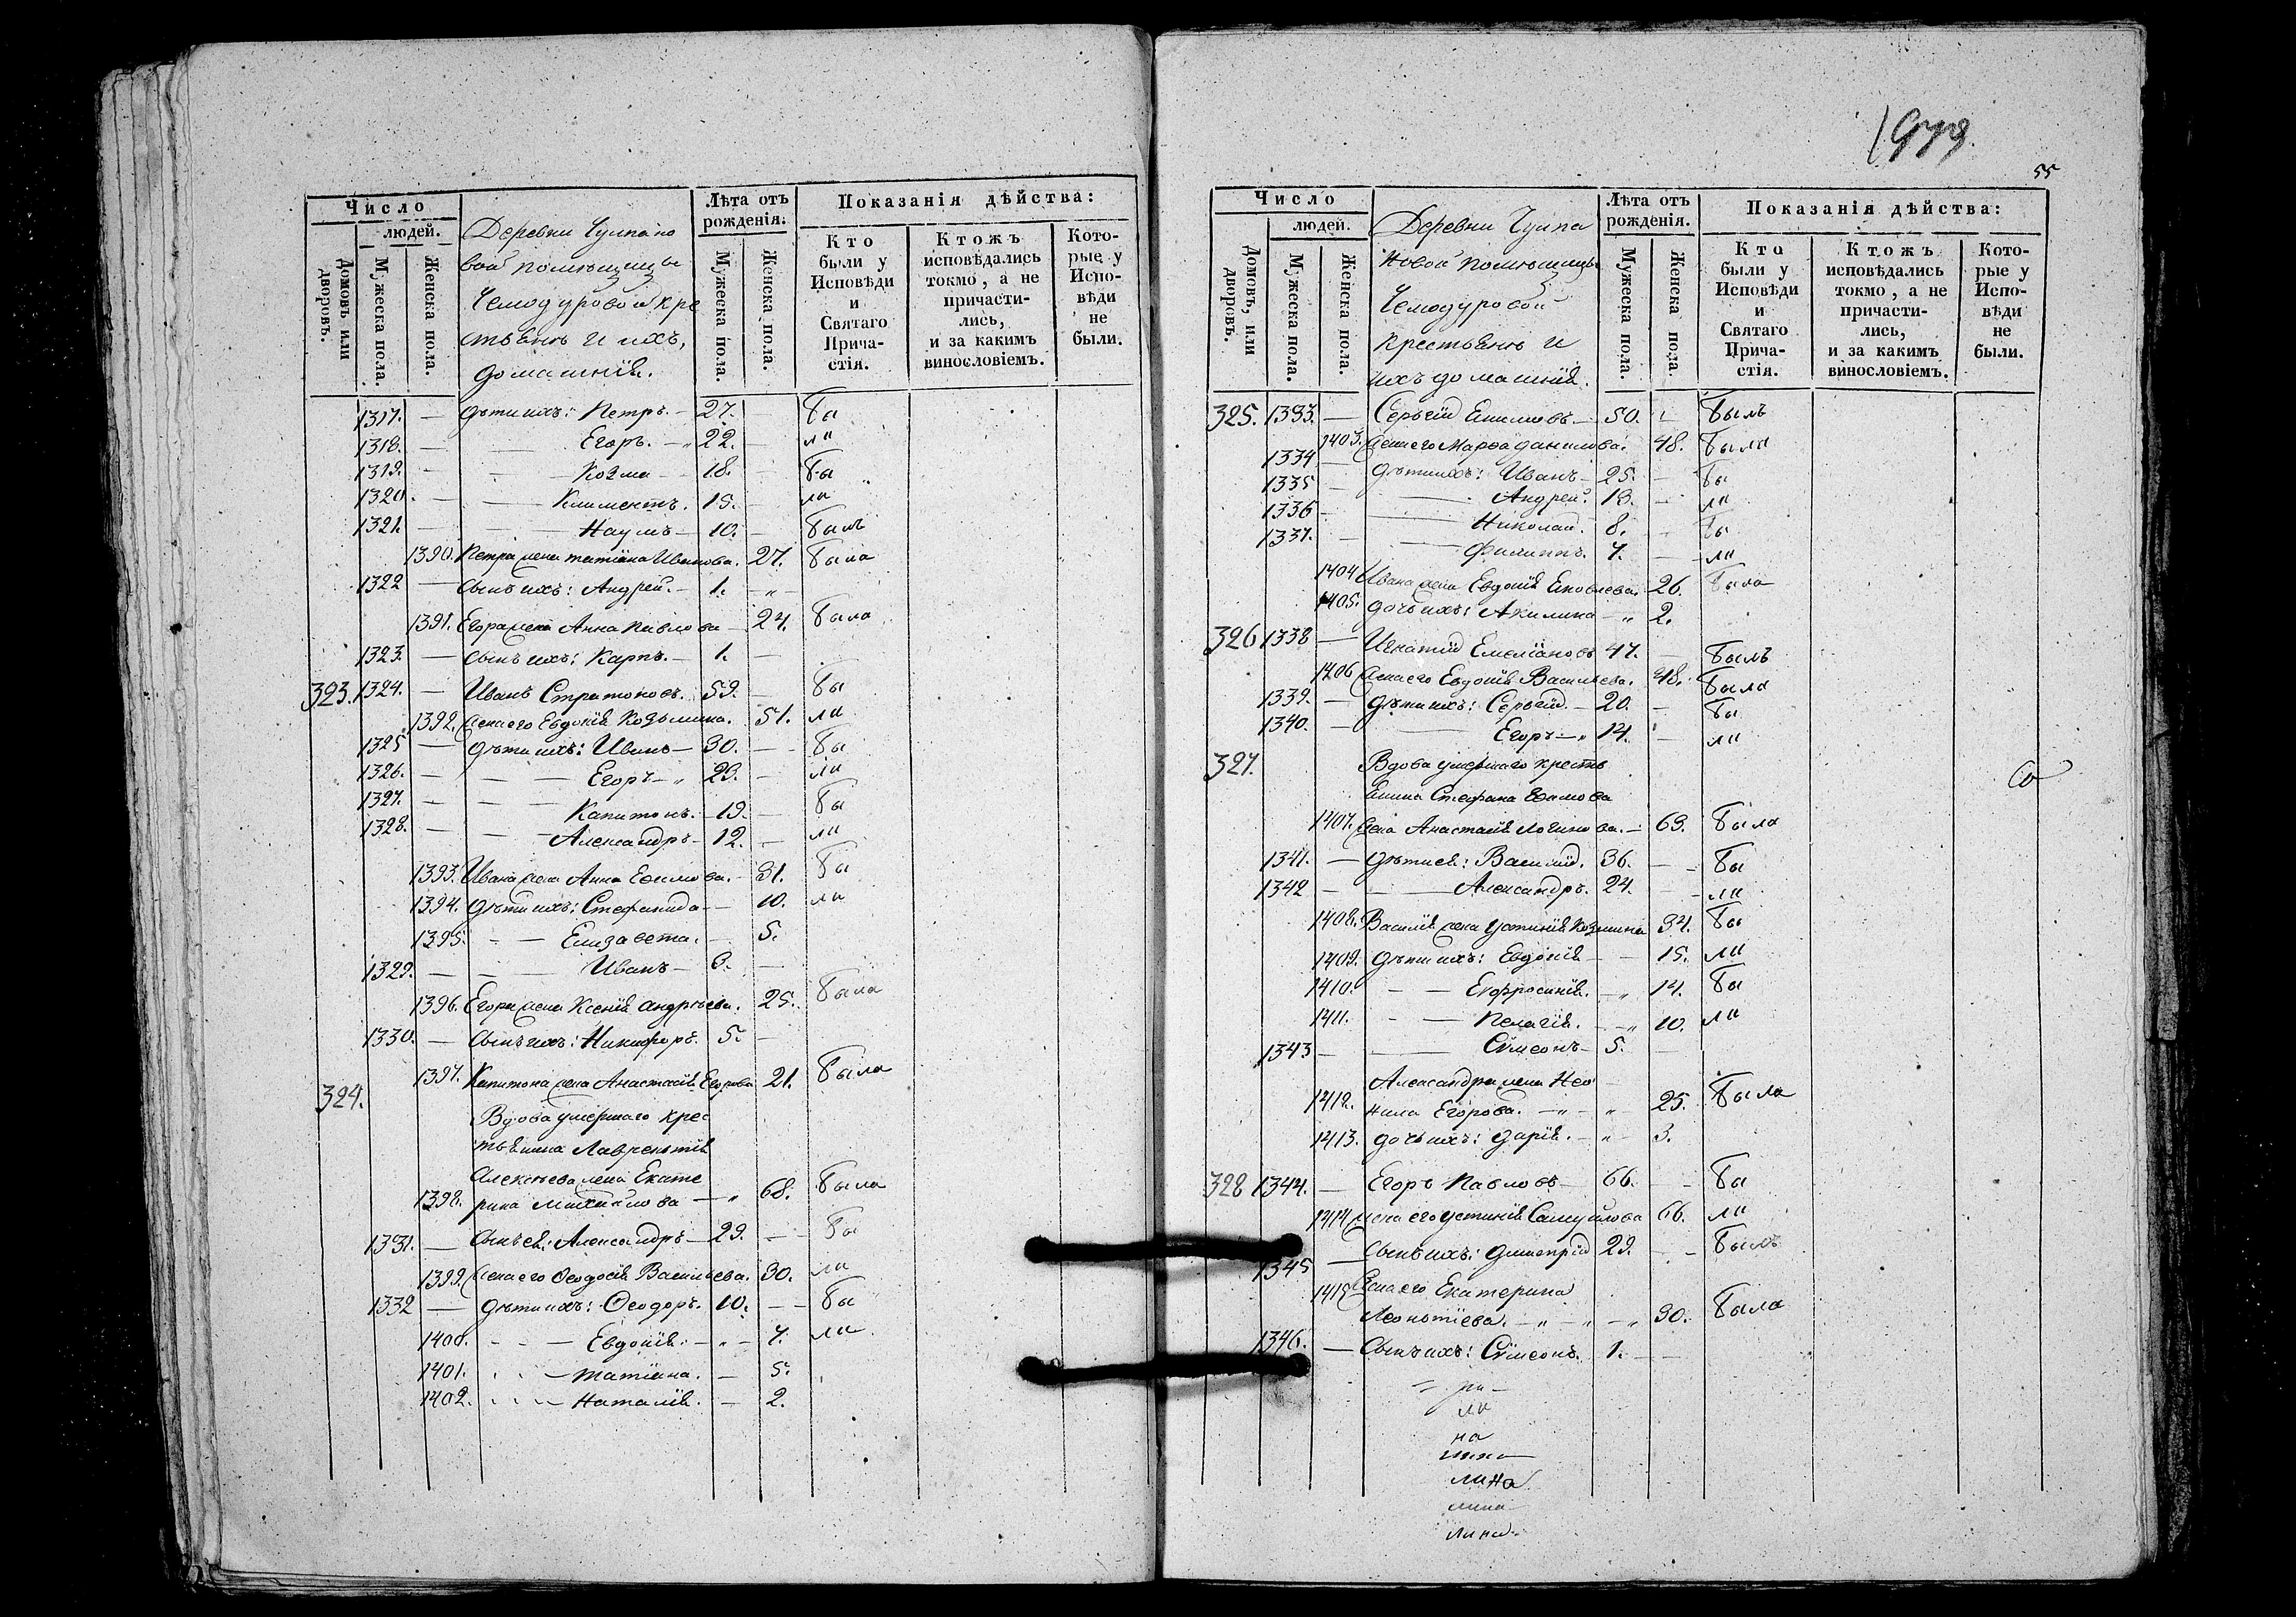 Число
людей.
Домовъ или дворовъ.
Мужеска пола.
Женска пола.
Деревни Чулпано
вой помѣщицы
Чемодуровой кре
стьянъ и ихъ,
домашнія.
Лѣта отъ рожденія:
Мужеска пола.
Женска пола.
Показанія дѣйства:
Кто были у Исповѣди и Святаго Прича-стія.
Ктожъ исповѣдались токмо, а не причасти-лись, и за какимъ винословіемъ.
Кото-рые у Испо-вѣди не были.
1317. — дѣти ихъ: Петръ. — 27. — Бы
1318. — — Егоръ. — 22. — ли
1319. — — Козма — 18. — Бы
1320. — — Климентъ. 15. — ли
1321. — — Наумъ — 10. — Былъ
1390. Петра жена Татіана Иванова. 27. Была
1322 — Сынъ ихъ: Андрей. — 1. — „ —
1391. Егора жена Анна Павлова — 24. Была
1323. — Сынъ ихъ: Карпъ. — 1. —
323. 1324. — Иванъ Стратоновъ. 59. — Бы
1392. Жена его Евдокія Козьмина. 51. ли
1325 — дѣти ихъ: Иванъ — 30. — Бы
1326. — — — Егоръ — „ 23. — ли
1327. — — — Капитонъ. — 19. — Бы
1328. — — — Александръ — 12. — ли
1393. Ивана жена Анна Еѳимова. — 31. Бы
1394. дѣти ихъ: Стефанида — — 10. ли
1395. — — Елизавета. — 5.
1329. — — — Иванъ — 3. —
1396. Егора жена Ксенія Андрѣева. 25. Была
1330. — Сынъ ихъ: Никифоръ. 5. —
1397. Капитона жена Анастасія Егорова 21. Была
324.
Вдова умершаго крес
тьянина Лаврентія
Алексѣева жена Екате
1398. рина Михайлова — „ 68. Была
1331. — Сынъ ея: Александръ — 29. — Бы
1399. Жена его Ѳеодосія Васильева. 30. ли
1332 — дѣти ихъ: Ѳеодоръ. 10. — — Бы
1400. — — — Евдокія: — „ — 7. ли
1401. — Татіана. — 5.
1402. — Наталія. — 2.
55
Число
людей.
Домовъ, или дворовъ.
Мужеска пола.
Женска пола.
Деревни Чулпа
новой помѣщицы
Чемодуровой
крестьянъ и
ихъ домашнія.
Лѣта отъ рожденія.
Мужеска пола.
Женска пола.
Показанія дѣйства:
Кто были у Исповѣди и Святаго Прича-стія.
Ктожъ исповѣдались токмо, а не причасти-лись, и за какимъ винословіемъ.
Кото-рые у Испо-вѣди не были.
325. 1333. — Сергій 50. Былъ
1403. Жена его Марѳа Данилова. 48. Была
1334 — дѣти ихъ: Иванъ — 25. — Бы
1335 — — Андрей. 13. — ли
1336 — — Николай. 8. — Бы
1337. — — Филиппъ. 7. — ли
1404 Ивана жена Евдокія Яковлева. 26. Была
1405. дочь ихъ: Акилина — „ 2.
326 1338 — Игнатій Емеліановъ 47. — Былъ
1406 Жена его Евдокія Васильева. 48. Была
1339. — дѣти ихъ: Сергій. — 20. — Бы
1340. — Егоръ — „ 14. — ли
327.
Вдова умершаго кресть
янина Стефана Еѳимова
1407. жена Анастасія Логинова. — 63. Была
1341. — дѣти ея: Василій. 36. — Бы
1342 — — Александръ. 24. — ли
1408. Василія жена Устинія Козмина 34. Бы
1409. дѣти ихъ: Евдокія — — 15. ли
1410. — — Евфросинія. — „ 14. Бы
1411. — — Пелагія. — „ 10. ли
1343 — — Сѵмеонъ — 5. —
Александра жена Нео
1412. нила Егорова. — „ — „ 25. Была
1413. дочь ихъ: Дарія. — „ — 3.
328 1344. — Егоръ Павловъ — 66. — Бы
1414 Жена его Устинія Самуилова 66. ли
1345 — Сынъ ихъ: Димитрій 29. — Былъ
1415 Жена его Екатерина
Леонтіева. — „ — „ — „ 30. Была
1346. — Сынъ ихъ: Сѵмеонъ. 1. —
ли
на
лина
лина
лина